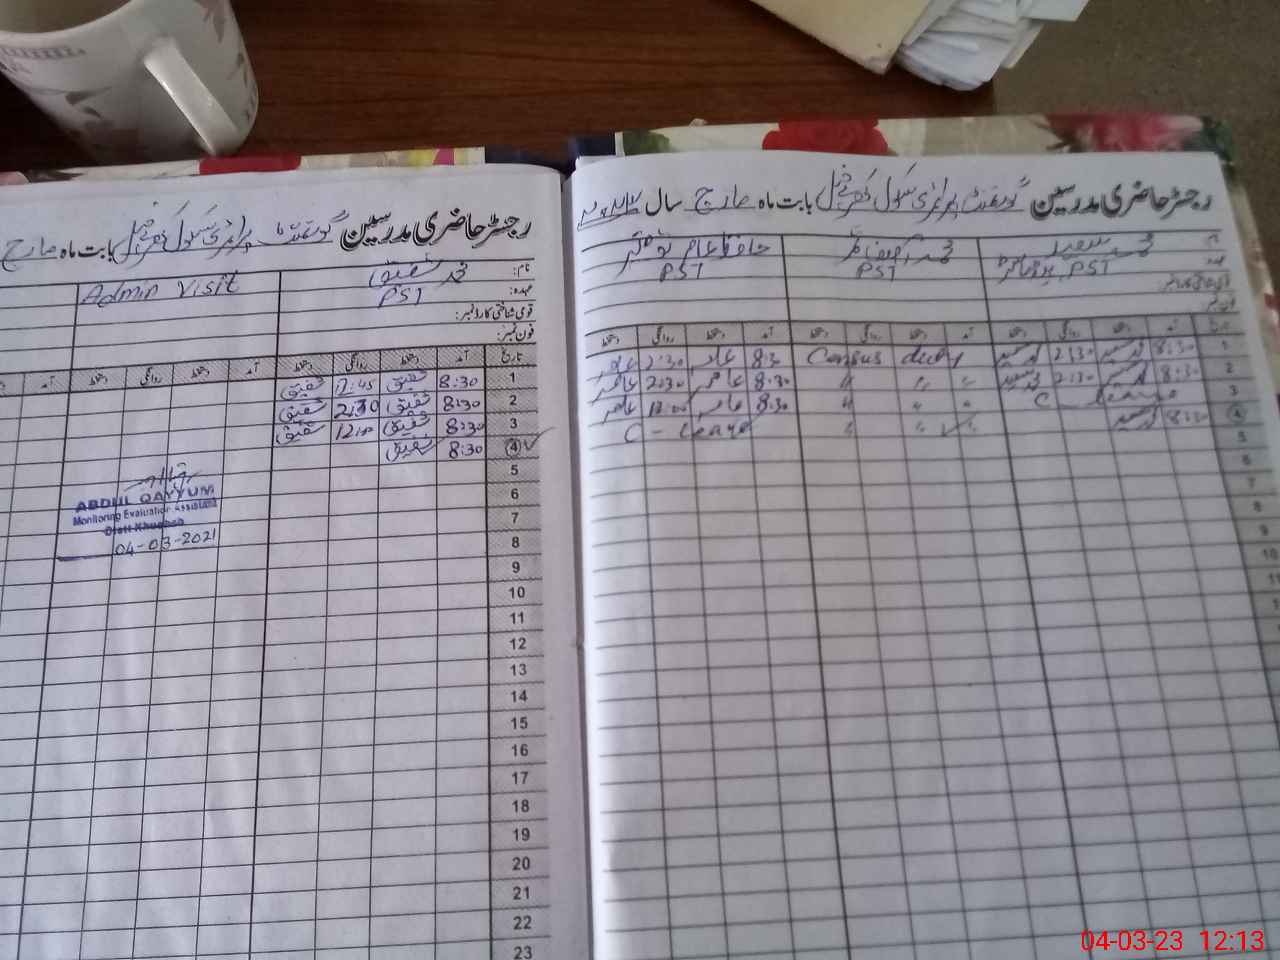 رجسٹر حاضری مدرسین گورنمنٹ پرائمری سکول بابت ماہ مارچ سال ۲۰۲۳
نام: محمد سعید
عہدہ: PST
محمد آصف
PST
حافظ عامر
PST
قومی شناختی کارڈ نمبر:
فون نمبر:
تاریخ آمد دستخط روانگی دستخط آمد دستخط روانگی دستخط آمد دستخط روانگی دستخط
1 8:30 2:30 Census duty 8:30 عامر 2:30 عامر
2 8:30 2:30 " " " 8:30 عامر 2:30 عامر
3 C - leave " " " 8:30 عامر 12:00 عامر
4 8:30 " " " C - leave
5
6
7
8
9
10
11
رجسٹر حاضری مدرسین گورنمنٹ پرائمری سکول بابت ماہ مارچ
نام: محمد شفیق
Admin visit
عہدہ: PST
قومی شناختی کارڈ نمبر:
فون نمبر:
تاریخ آمد دستخط روانگی دستخط آمد دستخط روانگی دستخط آمد
1 8:30 شفیق 12:45 شفیق
2 8:30 شفیق 2:30 شفیق
3 8:30 شفیق 12:00 شفیق
4 8:30 شفیق
5
6
7
8
9
10
11
12
13
14
15
16
17
18
19
20
21
22
23
ABDUL QAYYUM
Monitoring Evaluation Assistant
Distt Khushab
04-03-2021
04-03-23 12:13